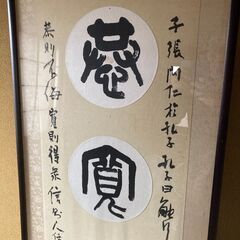 子張問仁於孔子孔子曰能行
恭
寬
恭則不侮寬則得衆信則人任